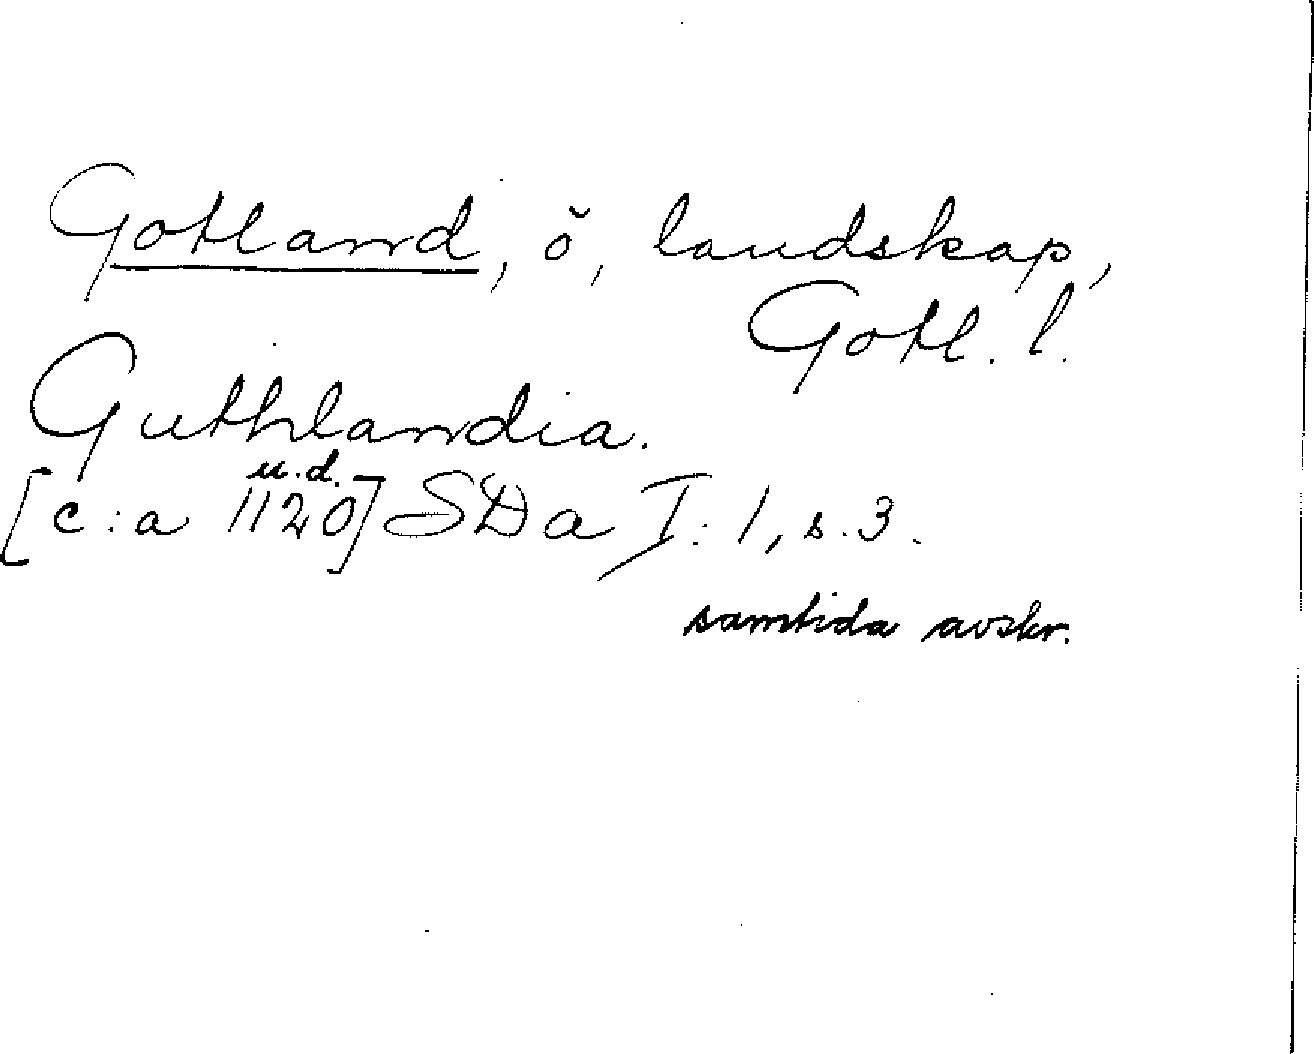 Gotland, ö, landskap,
Gotl. l.
Guthlandia.
u.d.
[c:a 1120] SDa I: 1, s. 3.
samtida avskr.